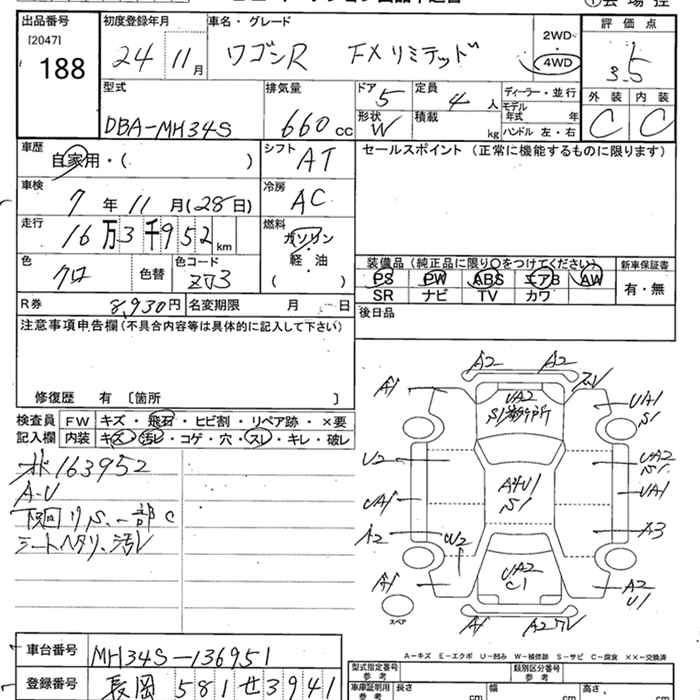 出品番号
[2047]
188
初度登録年月
24 11月
車名・グレード
ワゴンR FXリミテッド
2WD・
4WD
評価点
3.5
外装 内装
C C
型式
DBA-MH34S
排気量
660cc
ドア 5
形状 W
定員 4人
積載 kg
ディーラー・並行
モデル年式 年
ハンドル 左・右
車歴
自家用・( )
シフト
AT
セールスポイント (正常に機能するものに限ります)
車検
7年11月(28日)
冷房
AC
走行
16万3千952km
燃料
ガソリン
軽・油
( )
色
クロ
色替
色コード
ZJ3
装備品(純正品に限り○をつけてください)
新車保証書
PS PW ABS エアB AW
有・無
SR ナビ TV カワ
R券
8,930円
名変期限 月 日
後日品
注意事項申告欄(不具合内容等は具体的に記入して下さい)
修復歴 有 〔箇所 〕
検査員
記入欄
FW キズ・飛石・ヒビ割・リペア跡・×要
内装 キズ・汚レ・コゲ・穴・スレ・キレ・破レ
163952
A-U
下回りS.一部C
シートヘタリ、汚レ
A2 A2
A1
UA2
UA1
S1
U2
UA2
S1
UA1
A4U1
S1
UA1
A2
U2
A3
A1
UA2
C1
A2
U1
スペア
A1
A-キズ E-エクボ U-凹ミ W-補修跡 S-サビ C-腐食 ××-交換済
車台番号
MH34S-136951
登録番号
長岡 581 せ 3941
型式指定番号
参考
類別区分番号
参考
車庫証明用
参考
長さ 幅 高さ